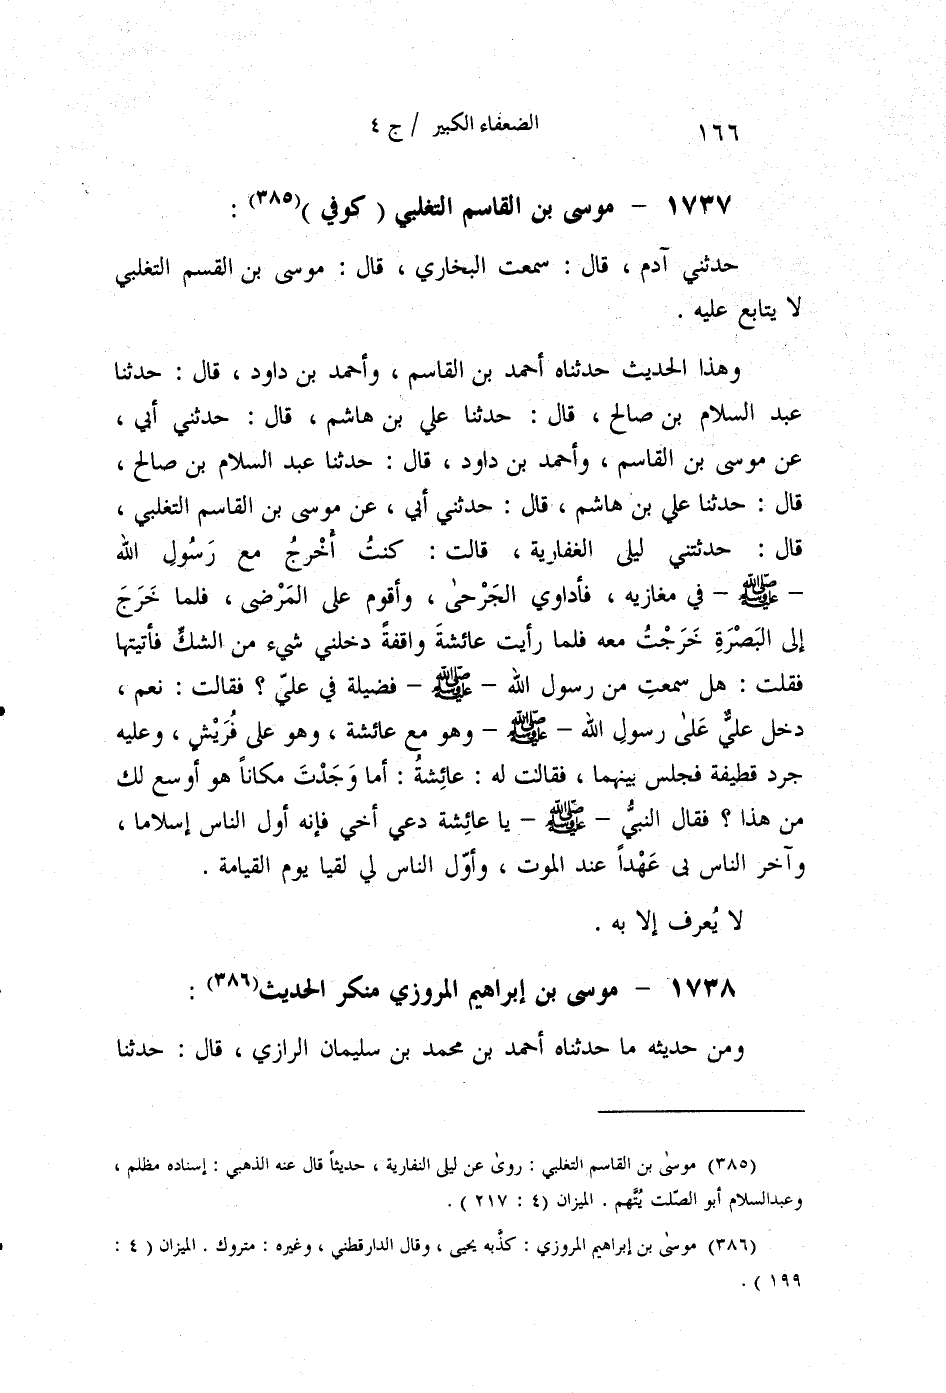 ١٦٦
الضعفاء الكبير / ج ٤
١٧٣٧ - موسى بن القاسم التغلبي ( كوفي )(٣٨٥) :
حدثني آدم ، قال : سمعت البخاري ، قال : موسى بن القسم التغلبي
لا يتابع عليه .
وهذا الحديث حدثناه أحمد بن القاسم ، وأحمد بن داود ، قال : حدثنا
عبد السلام بن صالح ، قال : حدثنا علي بن هاشم ، قال : حدثني أبي ،
عن موسى بن القاسم ، وأحمد بن داود ، قال : حدثنا عبد السلام بن صالح ،
قال : حدثنا علي بن هاشم ، قال : حدثني أبي ، عن موسى بن القاسم التغلبي ،
قال : حدثتني ليلى الغفارية ، قالت : كنتُ أُخْرجُ مع رَسُولِ الله
- ﷺ - في مغازيه ، فأداوي الجَرْحىٰ ، وأقوم على المَرْضى ، فلما خَرَجَ
إلى البَصْرَةِ خَرَجْتُ معه فلما رأيت عائشةَ واقفةً دخلني شيء من الشكِّ فأتيتها
فقلت : هل سمعتِ من رسول الله - ﷺ - فضيلة في عليّ ؟ فقالت : نعم ،
دخل عليٌّ عَلىٰ رسولِ الله - ﷺ - وهو مع عائشة ، وهو على فُرَيْشٍ ، وعليه
جرد قطيفة فجلس بينهما ، فقالت له : عائِشةُ : أما وَجَدْتَ مكاناً هو أوسع لك
من هذا ؟ فقال النبيُّ - ﷺ - يا عائِشة دعي أخي فإنه أول الناس إسلاما ،
وآخر الناس بى عَهْداً عند الموت ، وأوّل الناس لي لقيا يوم القيامة .
لا يُعرف إلا به .
١٧٣٨ - موسى بن إبراهيم المروزي منكر الحديث(٣٨٦) :
ومن حديثه ما حدثناه أحمد بن محمد بن سليمان الرازي ، قال : حدثنا
(٣٨٥) موسىٰ بن القاسم التغلبي : روىٰ عن ليلى النفارية ، حديثاً قال عنه الذهبي : إسناده مظلم ،
وعبدالسلام أبو الصّلت يُتَّهم . الميزان (٤ : ٢١٧ ) .
(٣٨٦) موسىٰ بن إبراهيم المروزي : كذَّبه يحيى ، وقال الدارقطني ، وغيره : متروك . الميزان ( ٤ :
١٩٩ ) .